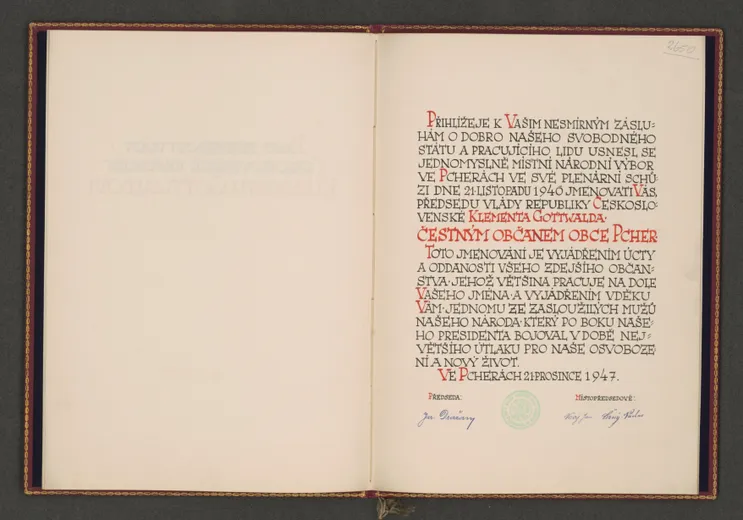 2650
PŘIHLÍŽEJE K VAŠIM NESMÍRNÝM ZÁSLU-
HÁM O DOBRO NAŠEHO SVOBODNÉHO
STÁTU A PRACUJÍCÍHO LIDU USNESL SE
JEDNOMYSLNĚ MÍSTNÍ NÁRODNÍ VÝBOR
VE PCHERÁCH VE SVÉ PLENÁRNÍ SCHŮ-
ZI DNE 21. LISTOPADU 1946 JMENOVATI VÁS,
PŘEDSEDU VLÁDY REPUBLIKY ČESKOSLO-
VENSKÉ KLEMENTA GOTTWALDA.
ČESTNÝM OBČANEM OBCE PCHER
TOTO JMENOVÁNÍ JE VYJÁDŘENÍM ÚCTY
A ODDANOSTI VŠEHO ZDEJŠÍHO OBČAN-
STVA. JEHOŽ VĚTŠINA PRACUJE NA DOLE
VAŠEHO JMÉNA. A VYJÁDŘENÍM VDĚKU
VÁM. JEDNOMU ZE ZASLOUŽILÝCH MUŽŮ
NAŠEHO NÁRODA. KTERÝ PO BOKU NAŠE-
HO PRESIDENTA BOJOVAL V DOBĚ NEJ-
VĚTŠÍHO ÚTLAKU PRO NAŠE OSVOBOZE-
NÍ A NOVÝ ŽIVOT.
VE PCHERÁCH 21. PROSINCE 1947.
PŘEDSEDA: MÍSTOPŘEDSEDOVÉ: